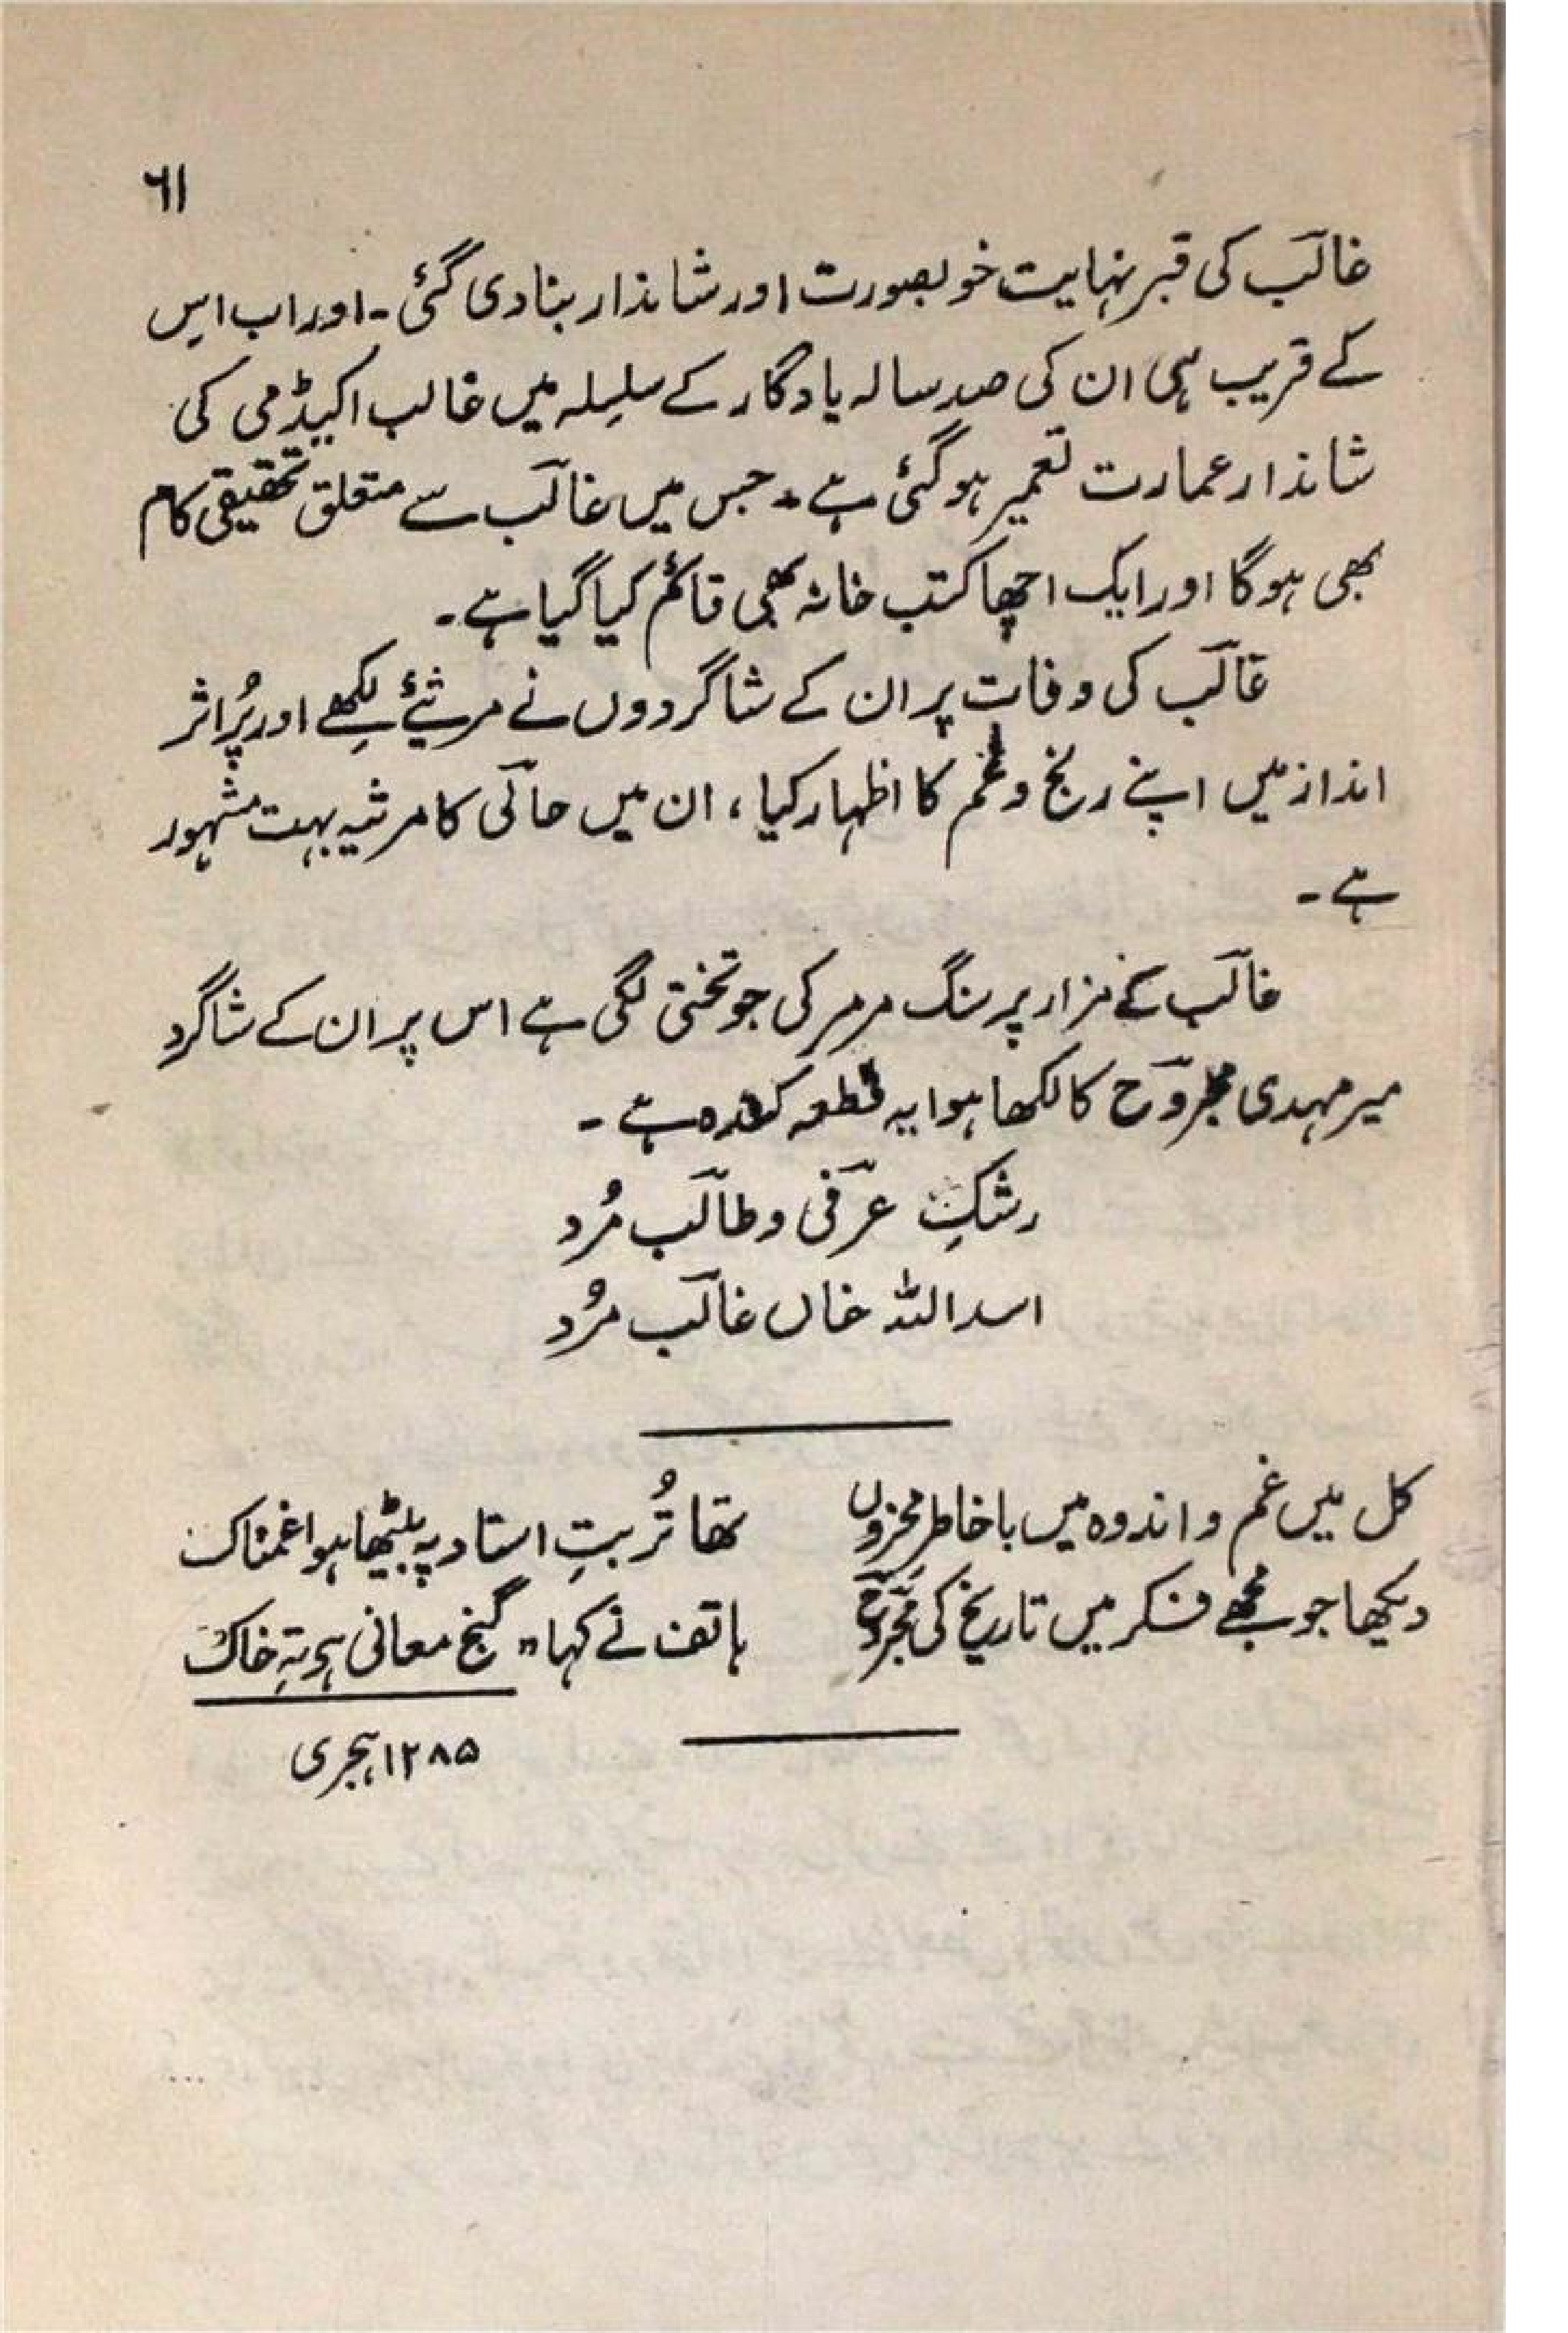 ۶۱
غالبؔ کی قبر نہایت خوبصورت اور شاندار بنا دی گئی ۔ اور اب اس
کے قریب ہی ان کی صد سالہ یادگار کے سلسلہ میں غالب اکیڈمی کی
شاندار عمارت تعمیر ہو گئی ہے ۔ جس میں غالبؔ سے متعلق تحقیقی کام
بھی ہوگا اور ایک اچھا کتب خانہ بھی قائم کیا گیا ہے ۔
غالبؔ کی وفات پر ان کے شاگردوں نے مرثیے لکھے اور پُر اثر
انداز میں اپنے رنج و غم کا اظہار کیا ، ان میں حالیؔ کا مرثیہ بہت مشہور
ہے ۔
غالبؔ کے مزار پر سنگ مرمر کی جو تختی لگی ہے اس پر ان کے شاگرد
میر مہدی مجروحؔ کا لکھا ہوا یہ قطعہ کندہ ہے ۔
رشکِ عرفیؔ و طالبؔ مُرد
اسد اللہ خاں غالبؔ مُرد
کل میں غم و اندوہ میں باخاطرِ محزوں تھا تُربتِ استاد پہ بیٹھا ہوا غمناک
دیکھا جو مجھے فکر میں تاریخ کی مجروحؔ ہاتف نے کہا " گنجِ معانی ہے تہِ خاک
۱۲۸۵ ہجری